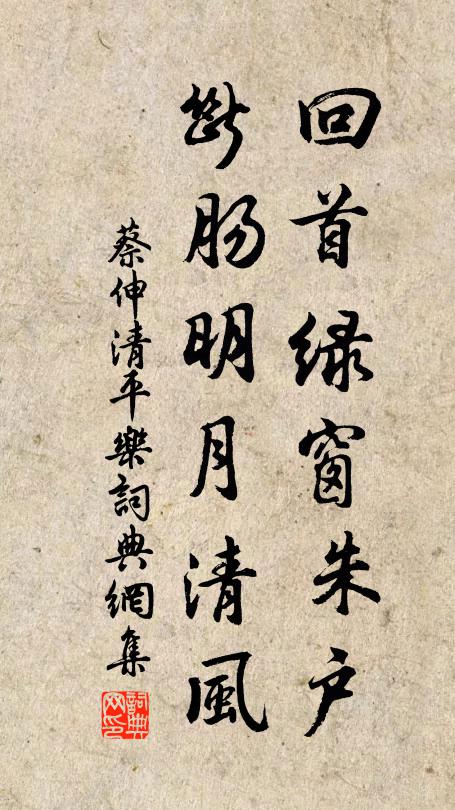 回首绿窗朱户
断肠明月清風
蔡伸清平樂詞典網集
詞典网印